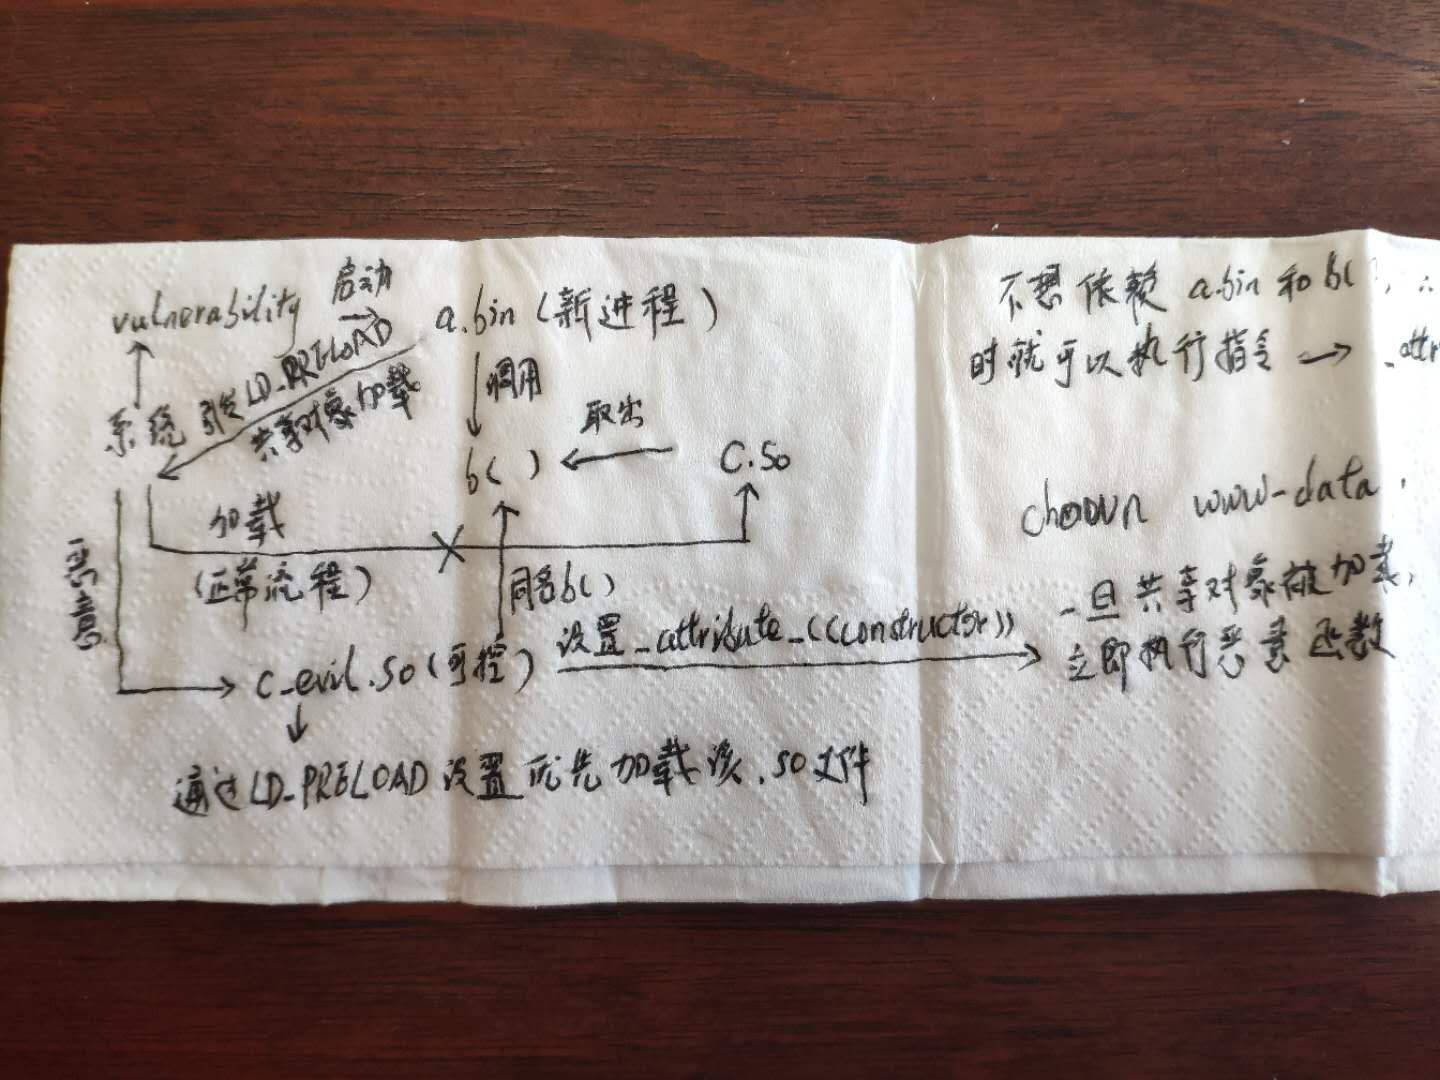 vulnerability 启动 a.bin (新进程)
系统 引发LD_PRELOAD
共享对象加载
调用
b( ) 取出 C.so
加载
(正常流程)
同名b()
C_evil.so (可控) 设置_attribute_((constructor))
通过LD_PRELOAD设置优先加载该.so文件
不想依赖 a.bin 和 b(
时就可以执行指令 → _attr
chown www-data
一旦共享对象被加载,
立即执行恶意函数